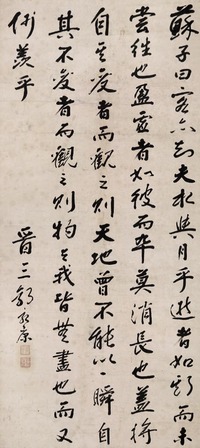 蘇子曰客亦知夫水與月乎逝者如斯而未
嘗往也盈虛者如彼而卒莫消長也蓋將
自其變者而觀之則天地曾不能以一瞬自
其不變者而觀之則物與我皆無盡也而又
何羨乎
晉三郭